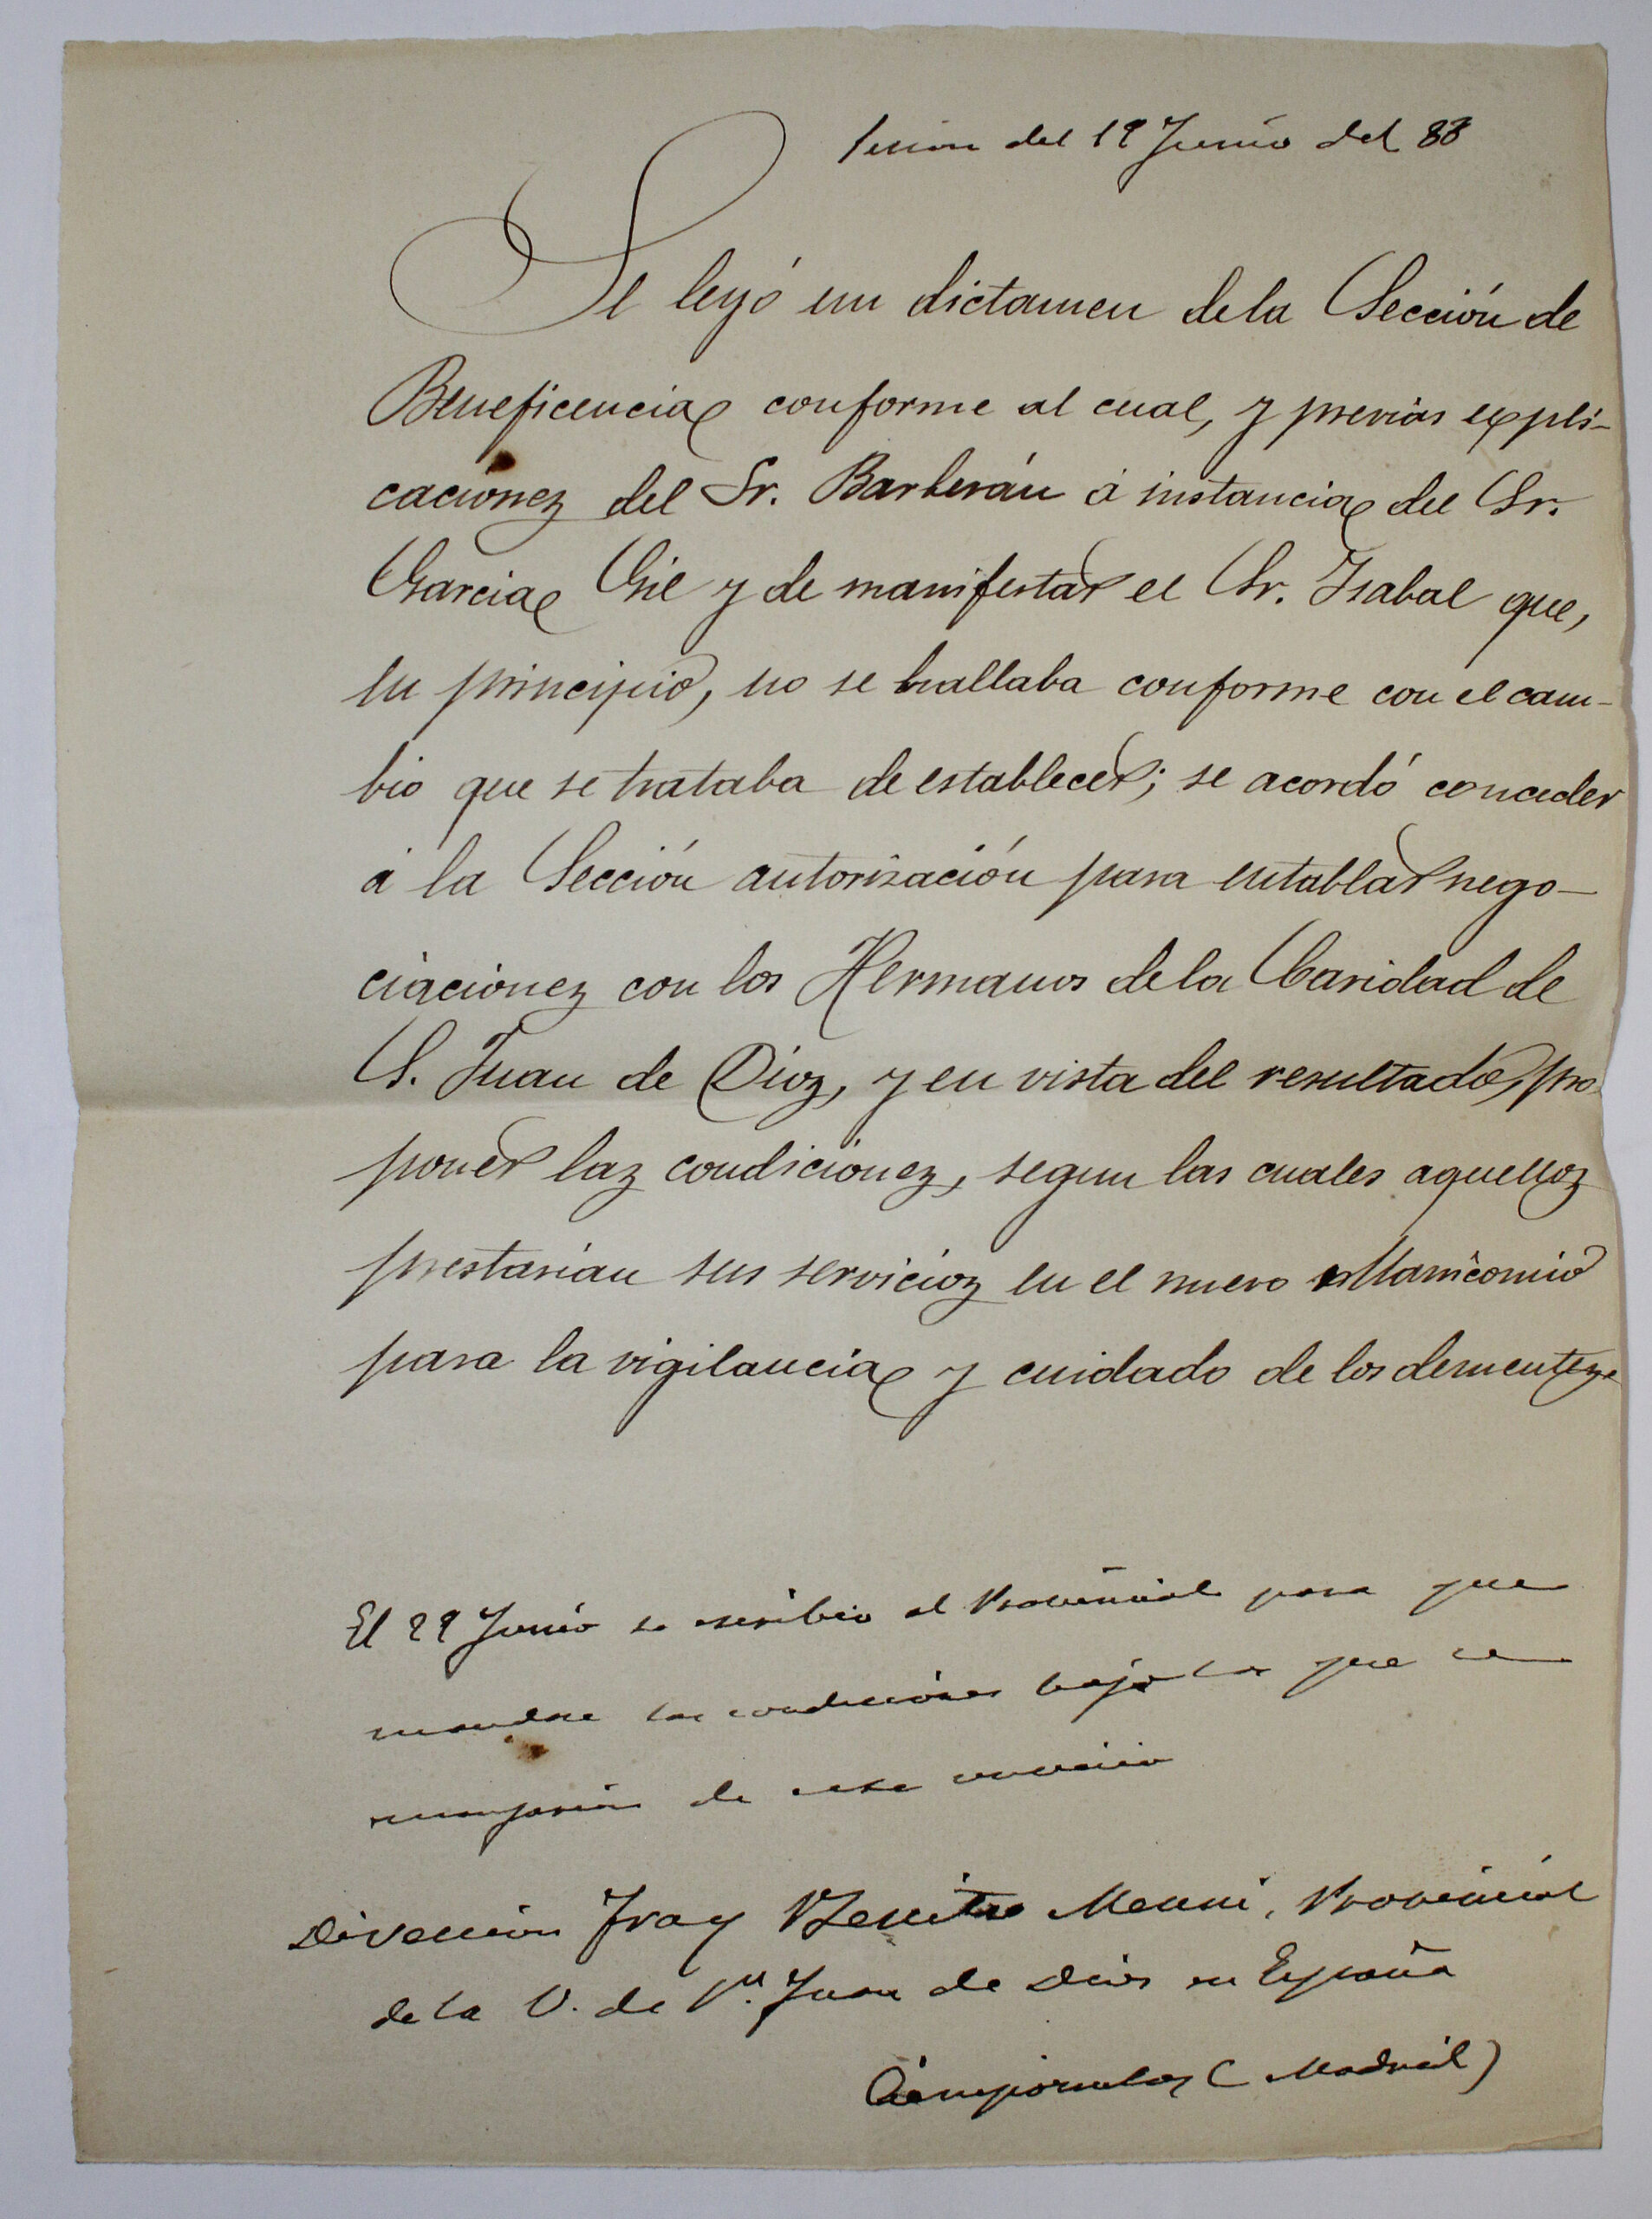 Sesion del 19 Junio del 88
Se leyó un dictamen de la Sección de
Beneficencia conforme al cual, y previas expli-
caciones del Sr. Barberán á instancia del Sr.
Garcia Gil y de manifestar el Sr. Isabal que,
en principio, no se hallaba conforme con el cam-
bio que se trataba de establecer; se acordó conceder
á la Sección autorización para entablar nego-
ciaciones con los Hermanos de la Caridad de
S. Juan de Dios, y en vista del resultado, pro-
poner las condiciones, segun las cuales aquellos
prestarían sus servicios en el nuevo Manicomio
para la vigilancia y cuidado de los dementes.
El 29 Junio se escribio al Provincial para que
mandase las condiciones bajo las que se
encargarían de este servicio
Direccion Fray Benito Menni, Provincial
de la O. de Sn. Juan de Dios en España
Ciempozuelos (Madrid)